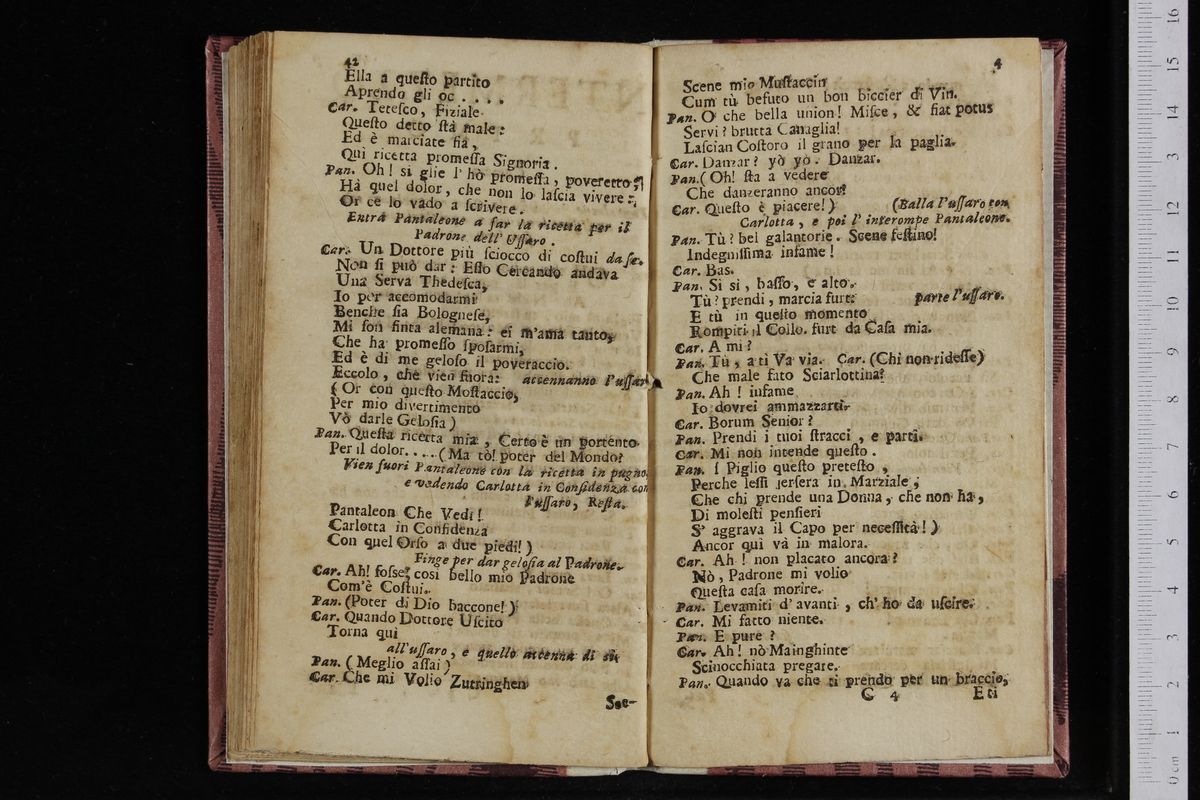 42
Ella a queſto partito
Aprendo gli oc . . . .
Car. Teteſco, Fiziale
Queſto detto ſtà male:
Ed è marciate ſia,
Qui ricetta promeſſa Signoria.
Pan. Oh! si glie l' hò promeſſa, poveretto
Hà quel dolor, che non lo laſcia vivere
Or ce lo vado a ſcrivere.
Entra Pantaleone a far la ricetta per il
Padrone dell' Uſſaro.
Car. Un Dottore più ſciocco di coſtui da ſe.
Non ſi può dar: Eſſo Cercando andava
Una Serva Thedeſca,
Io per accomodarmi
Benche ſia Bologneſe,
Mi ſon finta alemana: ei m'ama tanto,
Che ha promeſſo ſpoſarmi,
Ed è di me geloſo il poveraccio.
Eccolo, che vien fuora: accennanno l'uſſar
( Or con queſto Moſtaccio,
Per mio divertimento
Vò darle Geloſia )
Pan. Queſta ricetta mia, Certo è un portento
Per il dolor. . . . (Ma tò! poter del Mondo!
Vien fuori Pantaleone con la ricetta in pugno
e vedendo Carlotta in Confidenza con
l'uſſaro, Reſta.
Pantaleon Che Vedi!
Carlotta in Confidenza
Con quel Orſo a due piedi! )
Finge per dar geloſia al Padrone.
Car. Ah! foſse così bello mio Padrone
Com'è Coſtui.
Pan. (Poter di Dio baccone!)
Car. Quando Dottore Uſcito
Torna qui
all'uſſaro, e quello accenna di sì
Pan. ( Meglio aſſai )
Car. Che mi Volio Zutringhen
Sce-
4
Scene mio Muſtaccin
Cum tù befuto un bon biccier di Vin.
Pan. O che bella union! Miſce, & fiat potus
Servi? brutta Canaglia!
Laſcian Coſtoro il grano per la paglia.
Car. Danzar? yò yò. Danzar.
Pan. ( Oh! ſta a vedere
Che danzeranno ancor?
Car. Queſto è piacere!) (Balla l'uſſaro con
Carlotta, e poi l' interompe Pantaleone.
Pan. Tù? bei galantorie. Scene feſtino!
Indegniſſima infame!
Car. Bas.
Pan. Si si, baſſo, e alto.
Tù? prendi, marcia furt: parte l'uſſaro.
E tù in queſto momento
Rompiti il Collo. furt da Caſa mia.
Car. A mi?
Pan. Tù, a ti Va via. Car. (Chi non rideſſe)
Che male fato Sciarlottina?
Pan. Ah! infame
Io dovrei ammazzarti.
Car. Borum Senior?
Pan. Prendi i tuoi ſtracci, e parti.
Car. Mi non intende queſto.
Pan. ( Piglio queſto preteſto,
Perche leſſi jerſera in Marziale;
Che chi prende una Donna, che non ha,
Di moleſti penſieri
S' aggrava il Capo per neceſſità! )
Ancor qui và in malora.
Car. Ah! non placato ancora?
Nò, Padrone mi volio
Queſta caſa morire.
Pan. Levamiti d' avanti, ch' ho da uſcire.
Car. Mi fatto niente.
Pan. E pure?
Car. Ah! nò Mainghinte
Scinocchiata pregare.
Pan. Quando va che ti prendo per un braccio,
C 4 E ti